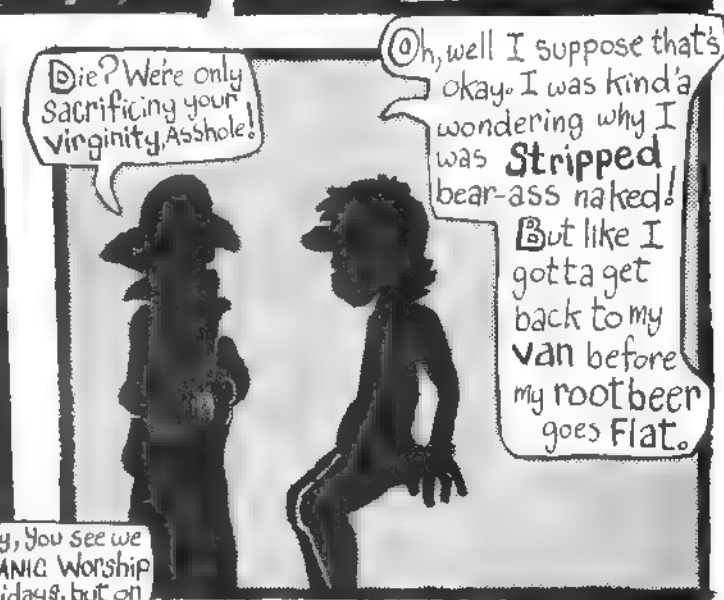 Die? We're only
sacrificing your
virginity, Asshole!
Oh, well I suppose that's
okay. I was kind'a
wondering why I
was Stripped
bear-ass naked!
But like I
gotta get
back to my
van before
my rootbeer
goes Flat.
y, you see we
ANIC Worship
idays, but on